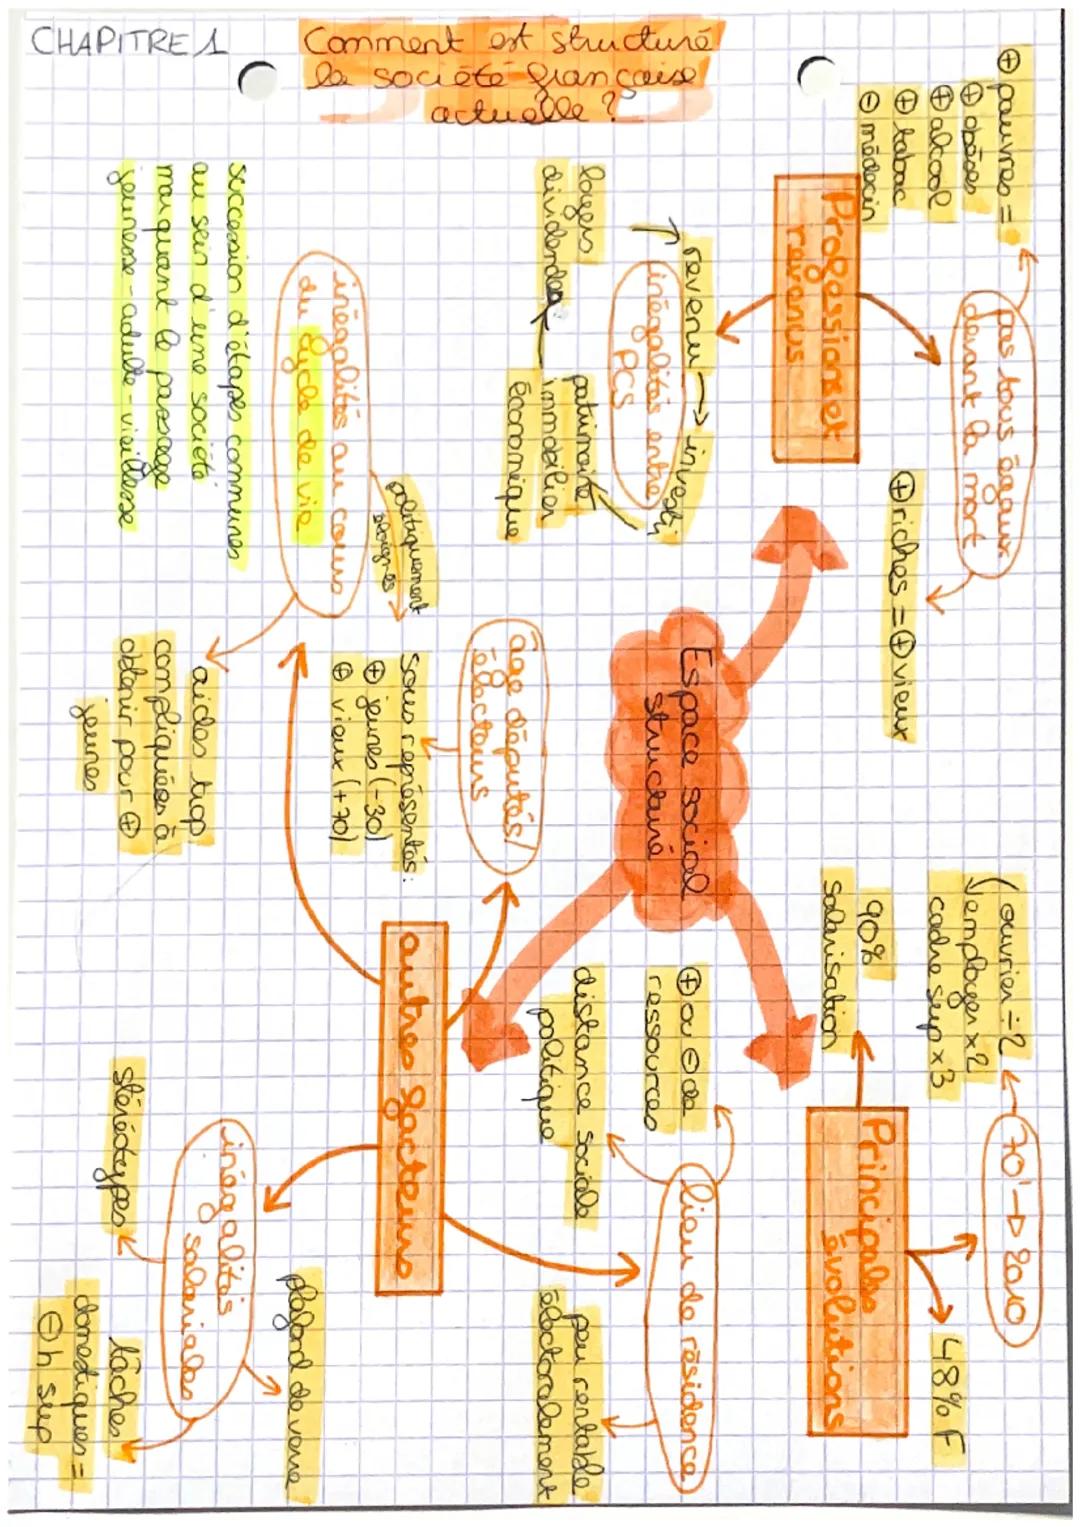 CHAPITRE 1
Comment est structuré
la société française
actuelle ?
Espace social
structuré
Professions et
revenus
pas tous égaux
devant la mort
⊕ pauvres =
⊕ obèses
⊕ alcool
⊕ tabac
⊖ médecin
⊕ riches = ⊕ vieux
inégalités entre
PCS
revenu → investi
patrimoine
immobilier
économique
loyers
dividendes
Principales
évolutions
70' → 2010
ouvrier = 2
employer × 2
cadre sup × 3
90%
salarisation
48% F
autres facteurs
lieu de résidence
⊕ ou ⊖ de
ressources
distance sociale
politique
peu rentable
électoralement
âge députés/
électeurs
sous représentés :
⊕ jeunes (-30)
⊕ vieux (+70)
inégalités au cours
du cycle de vie
politiquement
succession d'étapes communes
au sein d'une société
marquant le passage
jeunesse - adulte - vieillesse
aides trop
compliquées à
obtenir pour ⊕
jeunes
inégalités
salariales
plafond de verre
stéréotypes
tâches
domestiques =
⊖ h sup